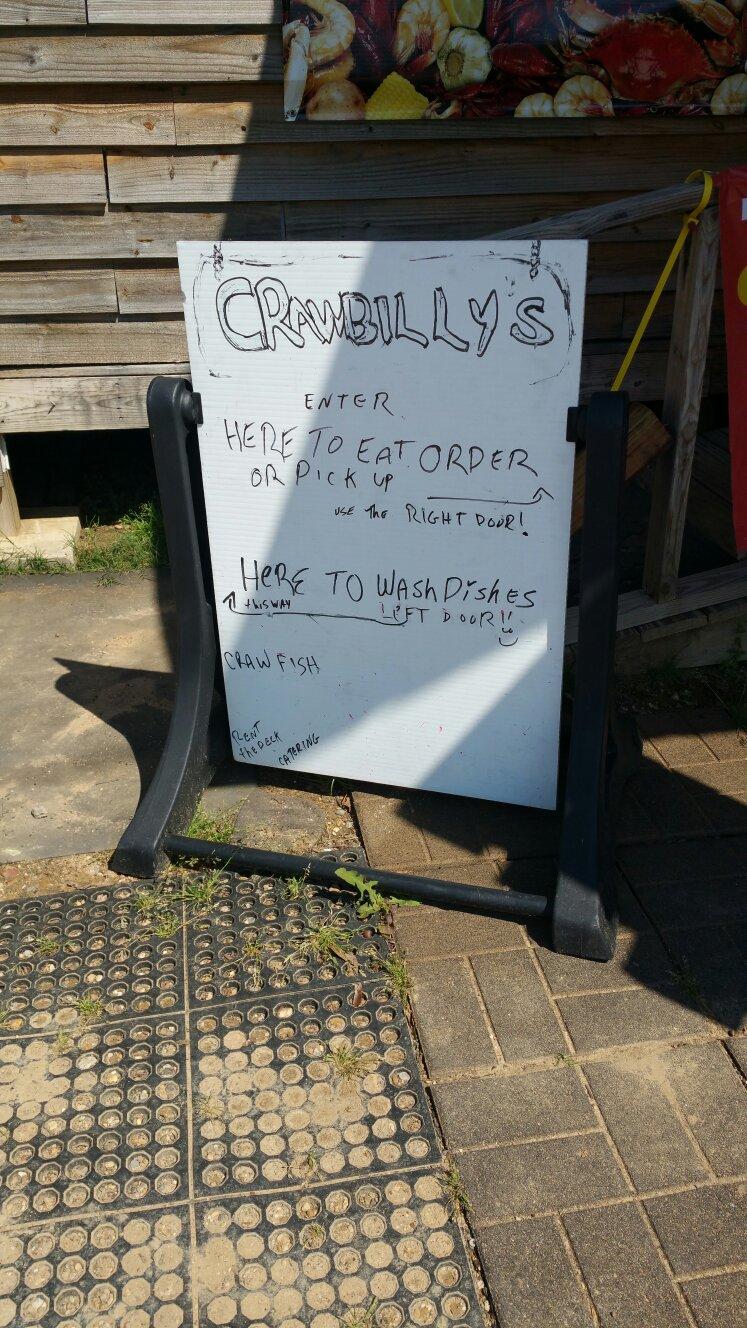 CRAWBILLYS
ENTER
HERE TO EAT ORDER
OR PICK UP
USE the RIGHT DOOR!
HERE TO WASH DISHES
thIS WAY LEFT DOOR!!
CRAWFISH
RENT
the DECK
CATERING